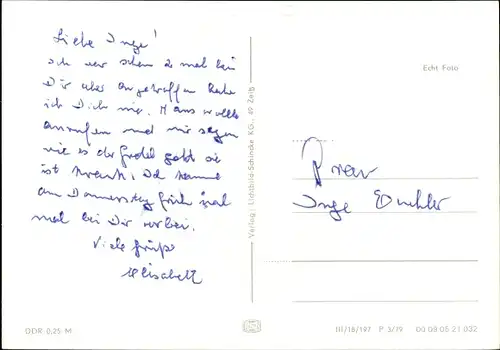 Liebe Inge!
Ich war schon 2 mal bei
Dir aber angetroffen habe
ich Dich nie. Hans wollte
anrufen und mir sagen
wie es der Gretel geht sie
ist krank. Ich komme
am Donnerstag früh mal
bei Dir vorbei.
Viele Grüße
Elisabeth
DDR 0,25 M
Verlag: Lichtbild-Schincke KG., 49 Zeitz
Echt Foto
Frau
Inge
III/18/197 P 3/79 00 08 05 21 032